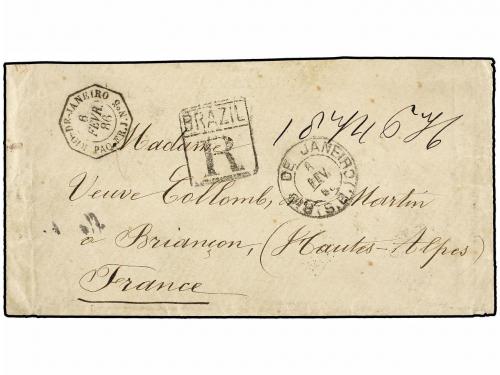 RIO-DE-JANEIRO
PAQ. FR. J. Nº 8
6
FEVR.
86
BRAZIL
R
Madame
DE JANEIRO
6
FEV
Veuve Collomb, Martin
à Briançon, (Hautes-Alpes)
France